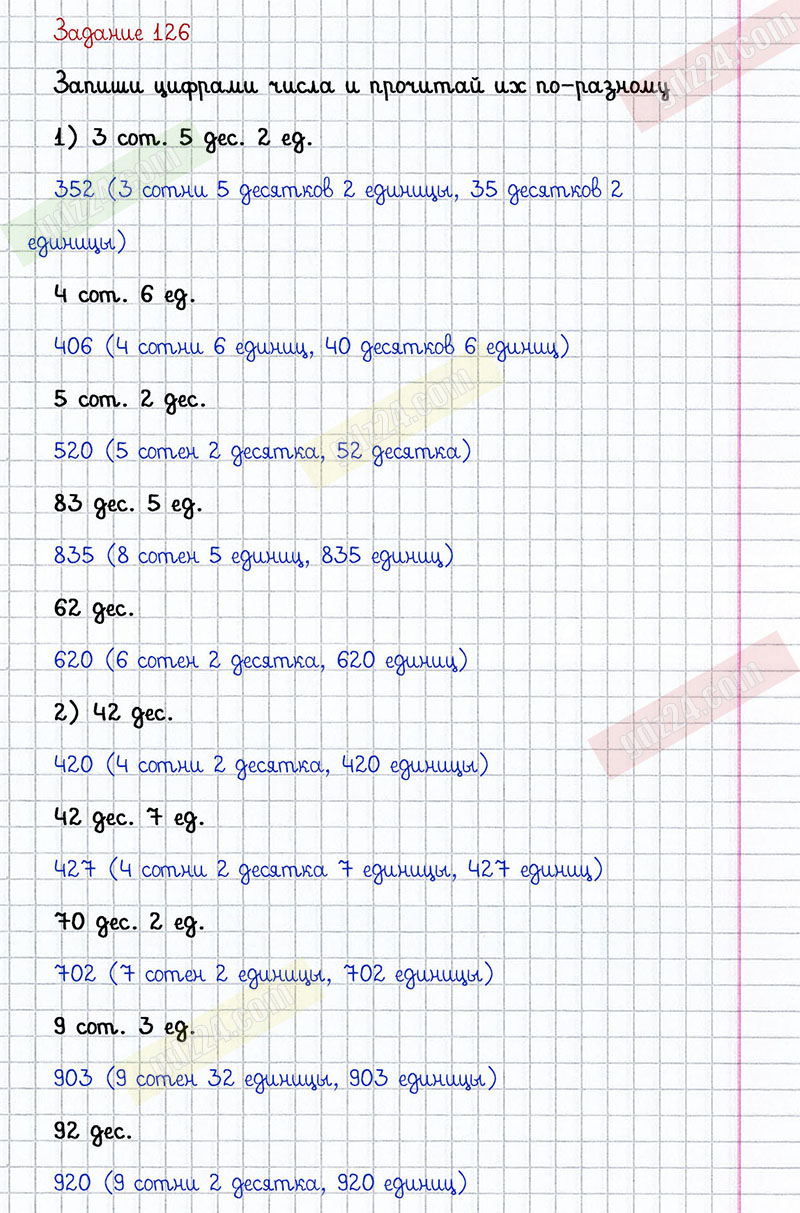 Задание 126
Запиши цифрами числа и прочитай их по-разному
1) 3 сот. 5 дес. 2 ед.
352 (3 сотни 5 десятков 2 единицы, 35 десятков 2
единицы)
4 сот. 6 ед.
406 (4 сотни 6 единиц, 40 десятков 6 единиц)
5 сот. 2 дес.
520 (5 сотен 2 десятка, 52 десятка)
83 дес. 5 ед.
835 (8 сотен 5 единиц, 835 единиц)
62 дес.
620 (6 сотен 2 десятка, 620 единиц)
2) 42 дес.
420 (4 сотни 2 десятка, 420 единицы)
42 дес. 7 ед.
427 (4 сотни 2 десятка 7 единицы, 427 единиц)
70 дес. 2 ед.
702 (7 сотен 2 единицы, 702 единицы)
9 сот. 3 ед.
903 (9 сотен 32 единицы, 903 единицы)
92 дес.
920 (9 сотни 2 десятка, 920 единиц)
gdz24.com
gdz24.com
gdz24.com
gdz24.com
gdz24.com